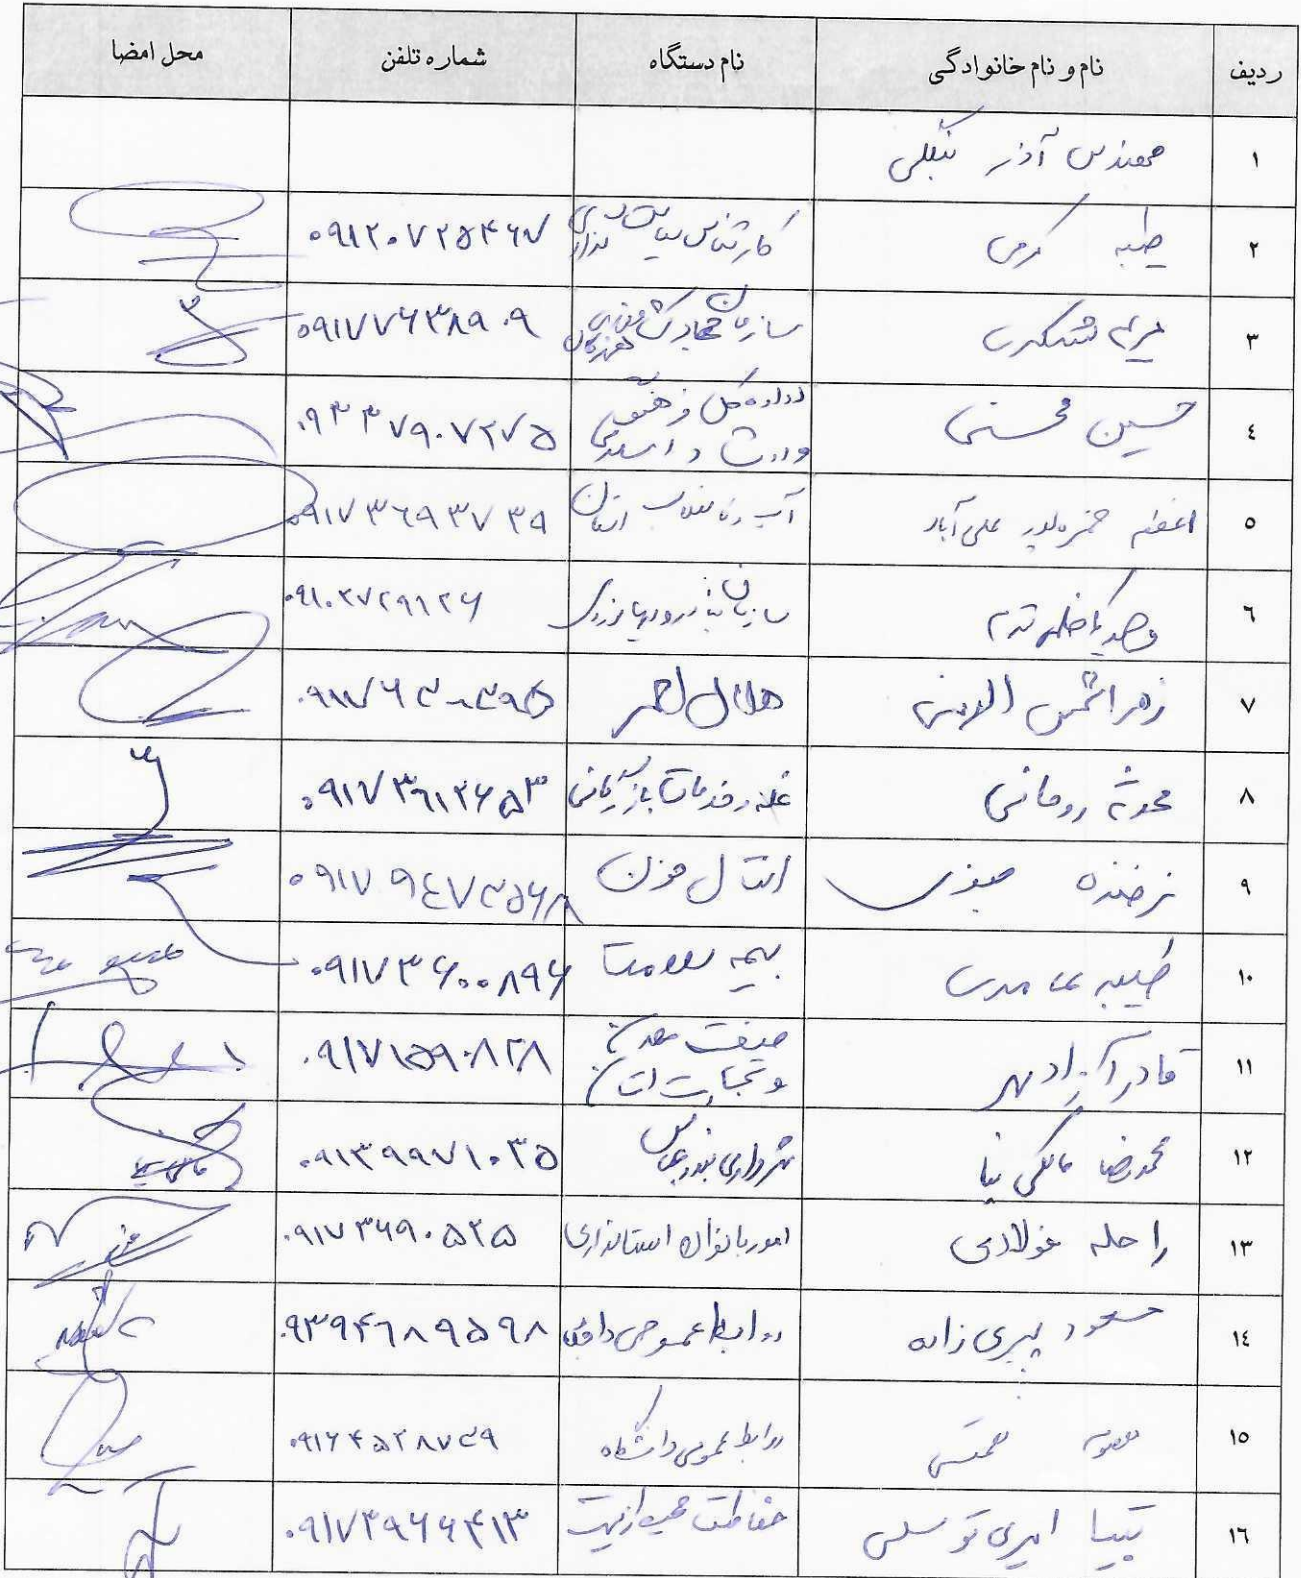 ردیف نام و نام خانوادگی نام دستگاه شماره تلفن محل امضا
۱ مهندس آذر
۲ طیبه کرمی کارشناس ۰۹۱۲۰۷۲۵۴۶۷
۳ مریم سازمان جهاد کشاورزی هرمزگان ۰۹۱۷۷۶۳۸۹۰۹
۴ حسین محسنی اداره کل فرهنگ و ارشاد اسلامی ۰۹۳۳۷۹۰۷۲۷۵
۵ اعظم حمزه پور علی آباد آب و فاضلاب استان ۰۹۱۷۳۶۹۳۷۳۹
۶ سازمان بنادر و دریانوردی
۷ زهرا شمس الدینی هلال احمر
۸ محدثه روحانی غله و خدمات بازرگانی ۰۹۱۷۳۶۱۲۶۵۳
۹ انتقال خون ۰۹۱۷۹۴۷۳۵۶۸
۱۰ طیبه عامری بیمه سلامت ۰۹۱۷۳۶۰۰۸۹۶
۱۱ قادر آزادمهر صنعت معدن و تجارت استان ۰۹۱۷۱۵۹۰۸۲۸
۱۲ محمدرضا مالکی نیا شهرداری بندرعباس ۰۹۱۳۹۹۷۱۰۳۵
۱۳ راحله فولادی امور بانوان استانداری ۰۹۱۷۳۶۹۰۵۲۵
۱۴ مسعود پیری زاده روابط عمومی ۰۹۳۹۴۶۸۹۵۹۸
۱۵ روابط عمومی دانشگاه ۰۹۱۶۴۵۲۸۷۳۹
۱۶ حفاظت محیط زیست ۰۹۱۷۳۹۶۶۴۱۳